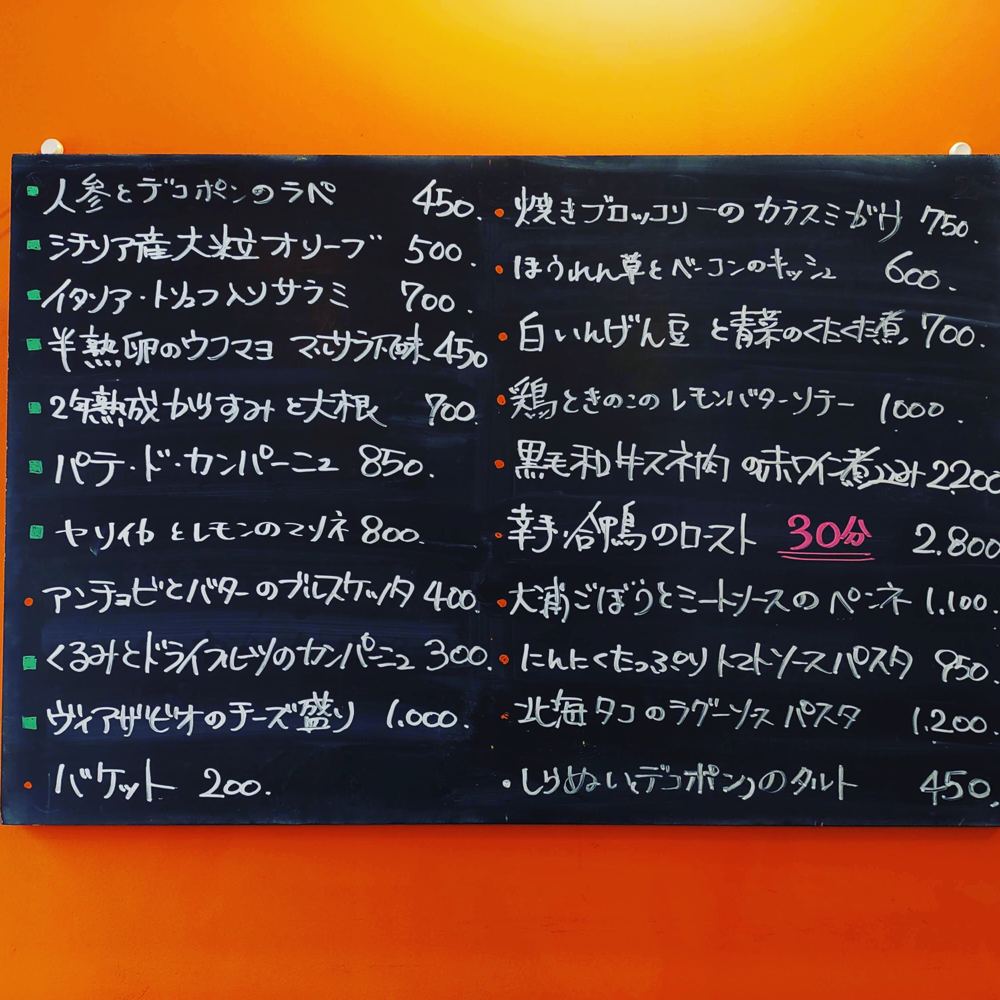 人参とデコポンのラペ 450.
シチリア産大粒オリーブ 500.
イタリア・トリュフ入りサラミ 700.
半熟卵のウフマヨ マルサラ風味 450
2年熟成からすみと大根 700.
パテ・ド・カンパーニュ 850.
ヤリイカとレモンのマリネ 800.
アンチョビとバターのブルスケッタ 400.
くるみとドライフルーツのカンパーニュ 300.
ヴィアザビオのチーズ盛り 1.000.
バケット 200.
焼きブロッコリーのカラスミがけ 750.
ほうれん草とベーコンのキッシュ 600.
白いんげん豆と青菜のくたくた煮 700.
鶏ときのこのレモンバターソテー 1000.
黒毛和牛スネ肉の赤ワイン煮込み 2200
幸手・合鴨のロースト 30分 2.800
大浦ごぼうとミートソースのペンネ 1.100.
にんにくたっぷりトマトソースパスタ 950.
北海タコのラグーソースパスタ 1.200.
しらぬい(デコポン)のタルト 450.